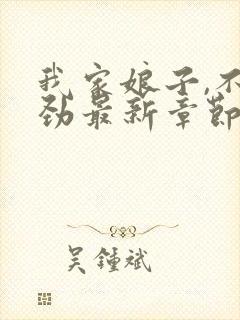 我家娘子,不
劲最新章节
吴锺斌